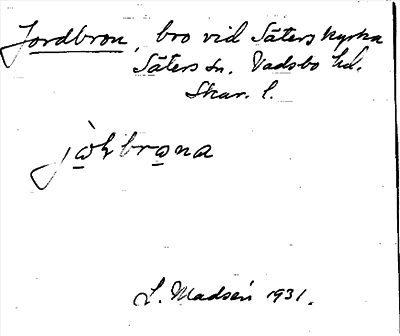 Jordbron, bro vid Säters kyrka
Säters sn. Vadsbo hd.
Skar. l.
L. Madsén 1931.